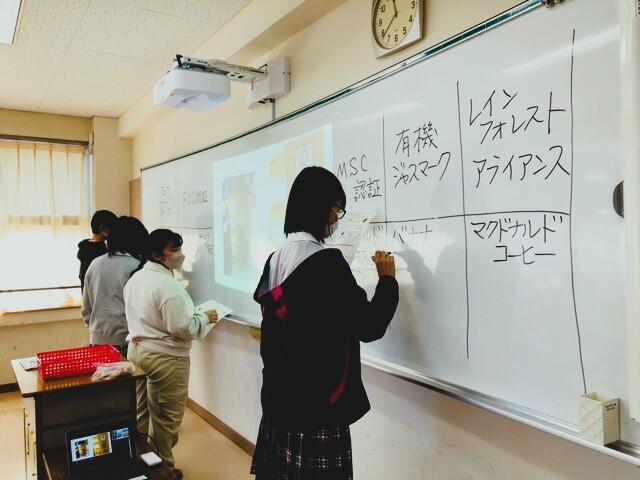 FSC認証
MSC
認証
有機
ジャスマーク
レイン
フォレスト
アライアンス
バナナ
マクドナルド
コーヒー